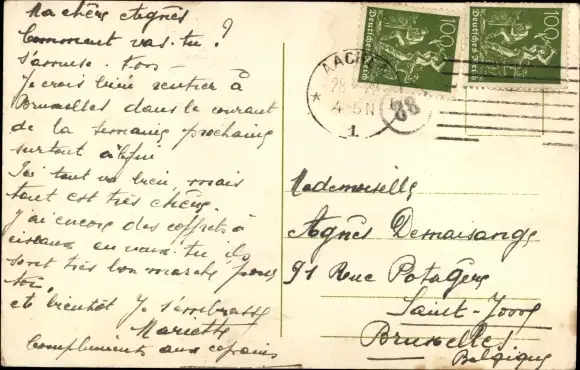 Ma chère Agnès
Comment vas-tu?
s'amuse-t-on -
Je crois bien rentrer à
Bruxelles dans le courant
de la semaine prochaine
surtout
Ici tout va bien mais
tout est très chère.
J'ai encore des coffrets à
ciseaux en veux-tu ils
sont très bon marché pour
toi.
et bientôt Je t'embrasse
Mariette
Compliments aux copains
100
Deutsches Reich
100
Deutsches Reich
AACHEN
28
4-5N
1
88
Mademoiselle
Agnès Demarsange
91 Rue Potagère
Saint-Josse
Bruxelles
Belgique